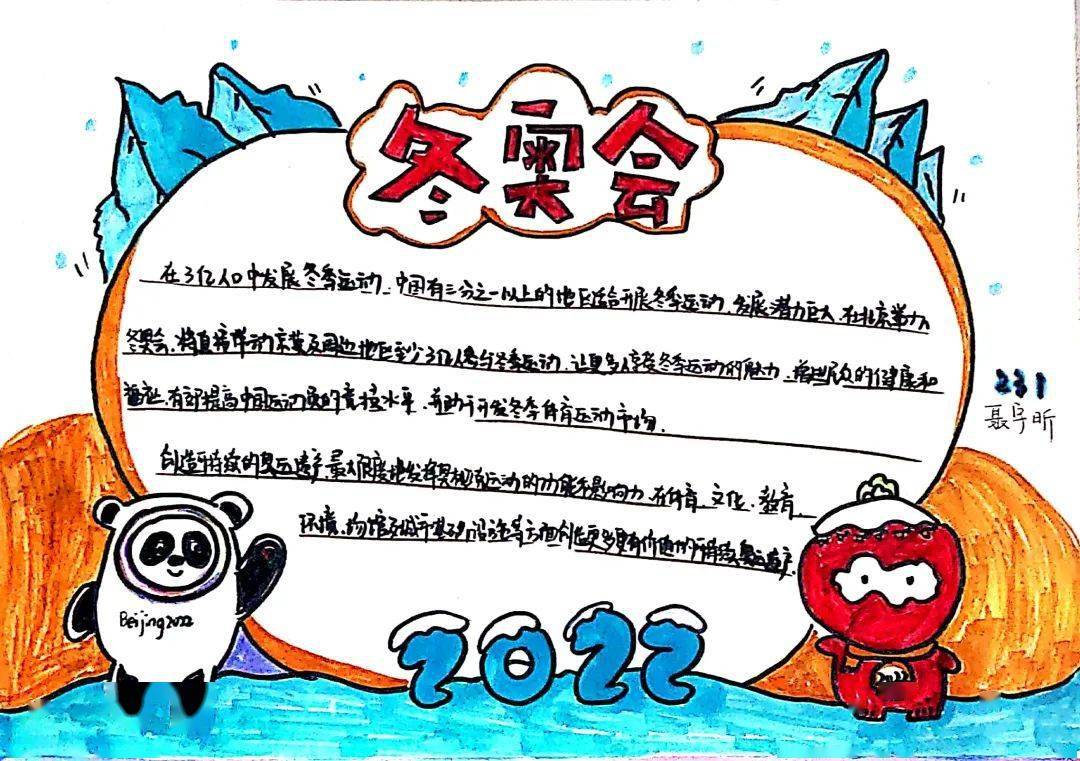 冬奥会
在3亿人口中发展冬季运动、中国有三分之一以上的地区适合开展冬季运动、发展潜力巨大、在北京举办
冬奥会、将直接带动京冀及周边地区至少3亿人参与冬季运动、让更多人享受冬季运动的魅力、增进民众的健康和
福祉、有助提高中国运动员的竞技水平、并助于开发冬季体育运动市场.
创造可持续的奥运遗产、最大限度地发挥奥林匹克运动的功能和影响力、在体育、文化、教育、
环境、场馆及城市基础设施等方面创造更多更有价值的可持续奥运遗产.
231
聂宇昕
Beijing2022
2022